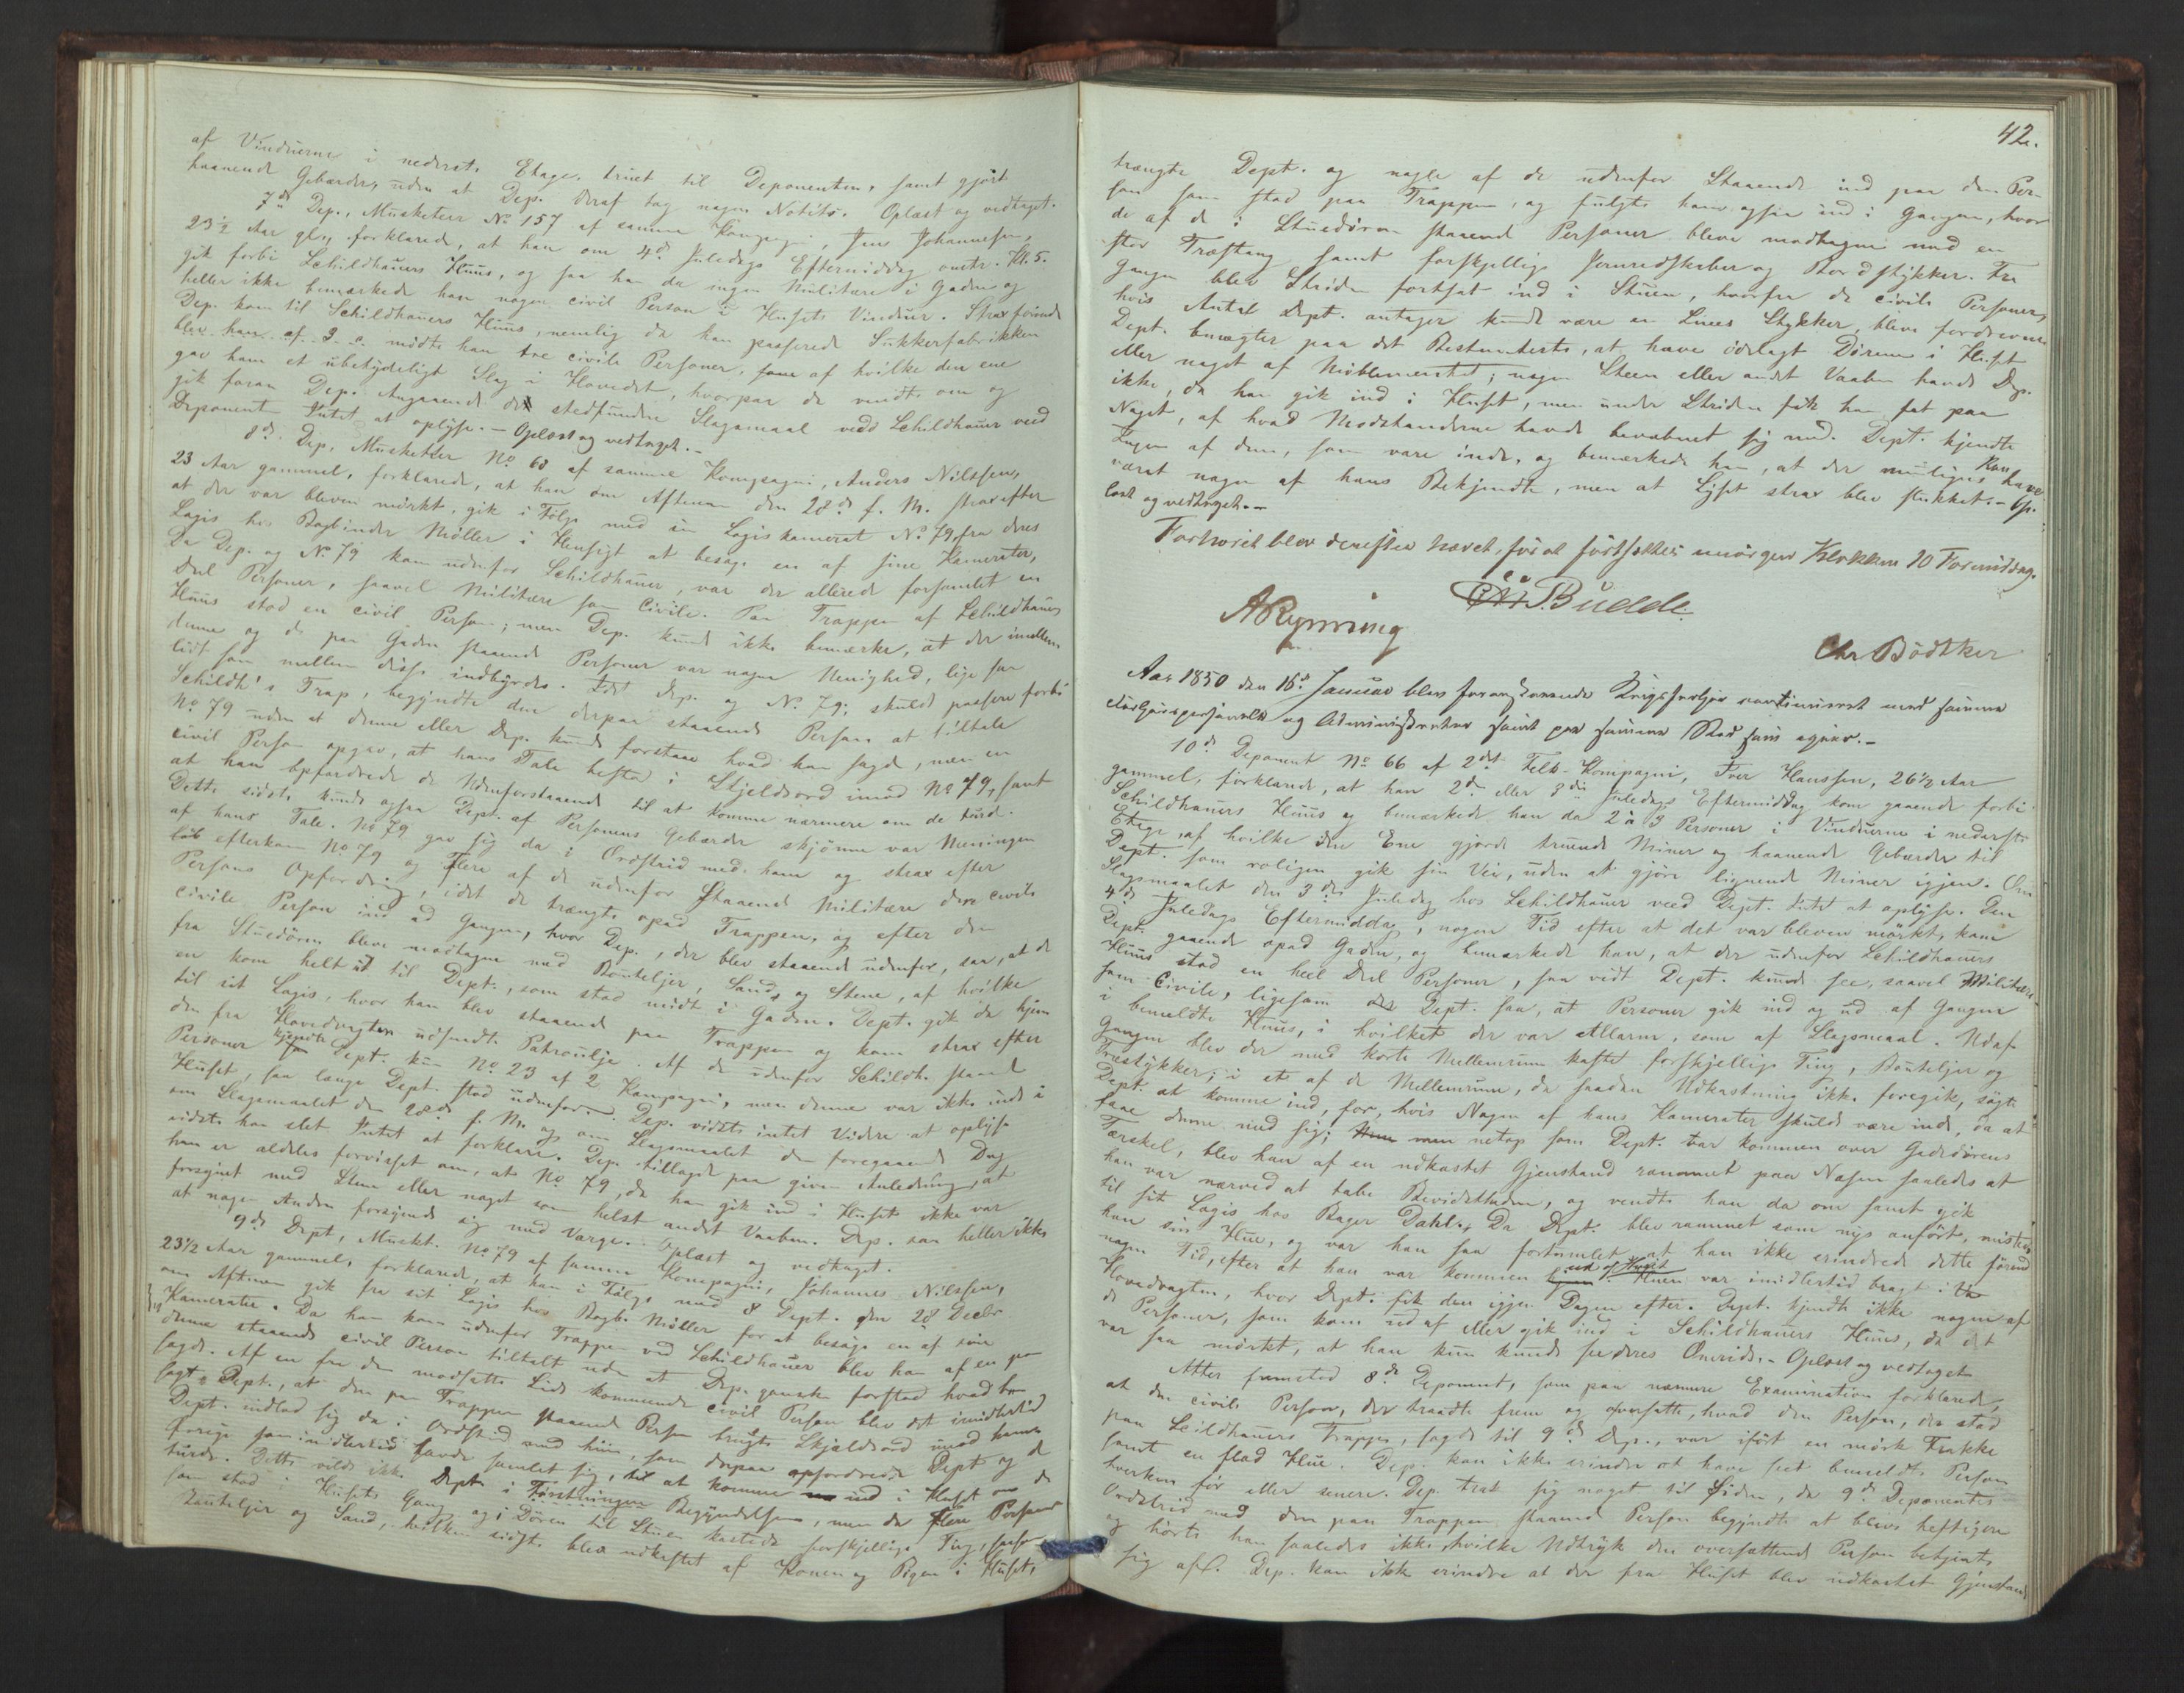 af Vinduerne i nederste Etage, truet til Deponenten, samt gjört
haanende Gebærder, uden at Dep. deraf tog nogen Notits. Oplæst og vedtaget.
7de Dep., Musketeer No 157 af samme Kompagni, Jens Johannesen,
23½ Aar gl., forklarede, at han om 4de Juledags Eftermiddag omtr. Kl. 5.
gik forbi Schildhauers Huus, og saa han da ingen Militære i Gaden og
heller ikke bemærkede han nogen civil Person i Husets Vinduer. Strax förend
Dep. kom til Schildhauers Huus, nemlig da han passerede Sukkerfabrikken
mödte han tre civile Personer, af hvilke den ene
gav ham et ubetydeligt Slag i Hovedet, hvorpaa de vendte om og
gik foran Dep. Angaaende det stedfundne Slagsmaal ved Schildhauer veed
Deponenten Intet at oplyse. - Oplæst og vedtaget. -
8de Dep, Musketeer No 63 af samme Kompagni, Anders Nilssen,
23 Aar gammel, forklarede, at han om Aftenen den 28de f. M. strax efter
at der var bleven mörkt, gik i Fölge med sin Logiskamerat No 79, fra deres
Logis hos Bogbinder Möller i Hensigt at besöge en af sine Kamerater,
Da Dep. og No 79 kom udenfor Schildhauer, var der allerede forsamlet en
Deel Personer, saavel Militære som Civile. Paa Trappen af Schildhauers
Huus stod en civil Person; men Dep. kunde ikke bemærke, at der imellem
denne og de paa Gaden staaende Personer var nogen Uenighed, lige saa
lidt som mellem disse indbyrdes. Idet Dep. og No 79, skulde passere forbi
Schildh's Trap, begyndte den derpaa staaende Person at tiltale
No 79 uden at denne eller Dep. kunde forstaae hvad han sagde, men en
civil Person opgav, at hans Tale bestod i Skjeldsord imod No 79, samt
at han opfordrede de Udenforstaaende til at komme nærmere om de turde.
Dette sidste kunde ogsaa Dept. af Personens Gebærder skjönne var Meningen
af hans Tale. No 79 gav sig da i Ordstrid med ham og strax efter
löb efterkom No 79 og Flere af de udenfor staaende Militære den civile
Persons Opfordring, idet de trængte opad Trappen, og efter den
civile Person ind ad Gangen, hvor Dep., der blev staaende udenfor, saa, at de
fra Stuedören bleve modtagne med Bouteljer, Sand, og Stene, af hvilke
en kom helt ud til Dept., som stod midt i Gaden. Dept. gik da hjem
til sit Logis, hvor han blev staaende paa Trappen og kom strax efter
den fra Hovedvagten udsendte Patrouilje. Af de udenfor Schildh. staaende
Personer kjendte Dept. kun No 23 af 2 Kompagni, men denne var ikke inde i
Huset, saa længe Dept. stod udenfor. - Dep. vidste intet Videre at oplyse
om Slagsmaalet den 28de f. M. og om Slagsmaalet den foregaaende Dag
vidste han slet Intet at forklare. Dep. tillagde paa given Anledning, at
han er aldeles forvisset om, at No 79, da han gik ind i Huset ikke var
forsynet med Steen eller noget som helst andet Vaaben. Dep. saa heller ikke
at nogen Anden forsynede sig med Værge. Oplæst og vedtaget.
9de Dept, Musket. No 79 af samme Kompagni, Johannes Nilssen,
23½ Aar gammel, forklarede, at han i Fölge med 8 Dept. den 28 Decbr
om Aftenen gik fra sit Logis hos Bogb. Möller for at besöge en af sine
Kamerater. Da han kom udenfor Trappen ved Schildhauer blev han af en paa
denne staaende civil Person tiltalt uden at Dep. ganske forstod hvad han
sagde. Af en fra den modsatte Side kommende civil Person blev det imidlertid
sagt Dept., at den paa Trappen staaende Person brugte Skjældsord imod ham.
Dept. indlod sig da i Ordstrid med hiin, som derpaa opfordrede Dept og de
Övrige som imidlertid havde samlet sig, til at komme ind i Huset om de
turde. Dette vilde ikke Dept. i Förstningen Begyndelsen, men da flere Personer
som stod i Husets Gang og i Dören til Stuen kastede forskjellige Ting, saasom
Bouteljer og Sand, hvilken sidste blev udkastet af Konen og Pigen i Huset,
42.
trængte Dept. og nogle af de udenfor Staaende ind paa den Per-
son som stod paa Trappen, og fulgte ham ogsaa ind i Gangen, hvor
de af de i Stuedören staaende Personer bleve modtagne med en
stor Træstang samt forskjellige Jernredskaber og Bordstykker. Fra
Gangen blev Striden fortsat ind i Stuen, hvorfra de civile Personer,
hvis Antal Dept. antager kunde være en Snees Stykker, bleve fordrevne.
Dept. benægter paa det Bestemteste, at have ödelagt Dörene i Huset
eller noget af Möblementet; nogen Steen eller andet Vaaben havde Dep.
ikke, da han gik ind i Huset, men under Striden fik han fat paa
Noget, af hvad Modstanderne havde bevæbnet sig med. Dept. kjendte
Ingen af dem, som vare inde, og bemærkede han, at der muligens kan have
været nogen af hans Bekjendte, men at Lyset strax blev slukket. - Op-
læst og vedtaget. -
Forhöret blev derefter hævet, for at fortsættes imorgen Klokken 10 Formiddag.
Budde.
A Rynning
Chr Bödtker
Aar 1850 den 16de Januar blev foranstaaende Krigsforhör continueret med samme
Forhörspersonale og Administrator samt paa samme Sted som igaar. -
10de Deponent No 66 af 2det Felt-Kompagni, Iver Hanssen, 26½ Aar
gammel, forklarede, at han 2den eller 3die Juledags Eftermiddag kom gaaende forbi
Schildhauers Huus og bemærkede han da 2 à 3 Personer i Vinduerne i nederste
Etage, af hvilke den Ene gjorde truende Miner og haanende Gebærder til
Dept. som roligen gik sin Vei, uden at gjöre lignende Miner igjen. Om
Slagsmaalet den 3die Juledag hos Schildhauer veed Dept. Intet at oplyse. Den
4de Juledags Eftermiddag, nogen Tid efter at det var bleven mörkt, kom
Dept. gaaende opad Gaden, og bemærkede han, at der udenfor Schildhauers
Huus stod en heel Deel Personer, saa vidt Dept. kunde see, saavel Militære
som Civile, ligesom Dept. saa, at Personer gik ind og ud af Gangen
i bemeldte Huus, i hvilket der var Allarm, som af Slagsmaal. Ud af
Gangen blev der med korte Mellemrum kastet forskjellige Ting, Bouteljer og
Træstykker; i et af de Mellemrum, da saadan Udkastning ikke foregik, sögte
Dept. at komme ind, for, hvis Nogen af hans Kamerater skulde være inde, da at
faae denne med sig; men netop som Dept. var kommen over Gadedörens
Tærskel, blev han af en udkastet Gjenstand rammet paa Næsen saaledes at
han var nærved at tabe Bevidstheden, og vendte han da om samt gik
til sit Logis hos Bager Dahl. Da Dept. blev rammet som nys anfört, mistede
han sin Hue, og var han saa fortumlet at han ikke erindrede dette förend
nogen Tid, efter at han var kommen ud af Huset. Huen var imidlertid bragt i
Hovedvagten, hvor Dept. fik den igjen Dagen efter. Dept. kjendte ikke nogen af
de Personer, som kom ud af eller gik ind i Schildhauers Huus, da det
var saa mörkt, at han kun kunde see deres Omrids. - Oplæst og vedtaget
Atter fremstod 8de Deponent, som paa nærmere Examination forklarede,
at den civile Person, der traadte frem og oversatte, hvad den Person, der stod
paa Schildhauers Trappe, sagde til 9de Dep., var iført en mörk Frakke
samt en flad Hue. Dep. kan ikke erindre at have seet bemeldte Person
hverken för eller senere. Dep. trak sig noget til Siden, da 9de Deponentes
Ordstrid med den paa Trappen staaende Person begyndte at blive heftigere
og hörte han saaledes ikke, hvilke Udtryk den oversættende Person betjente
sig af. Dep. kan ikke erindre at der fra Huset blev udkastet Gjenstande